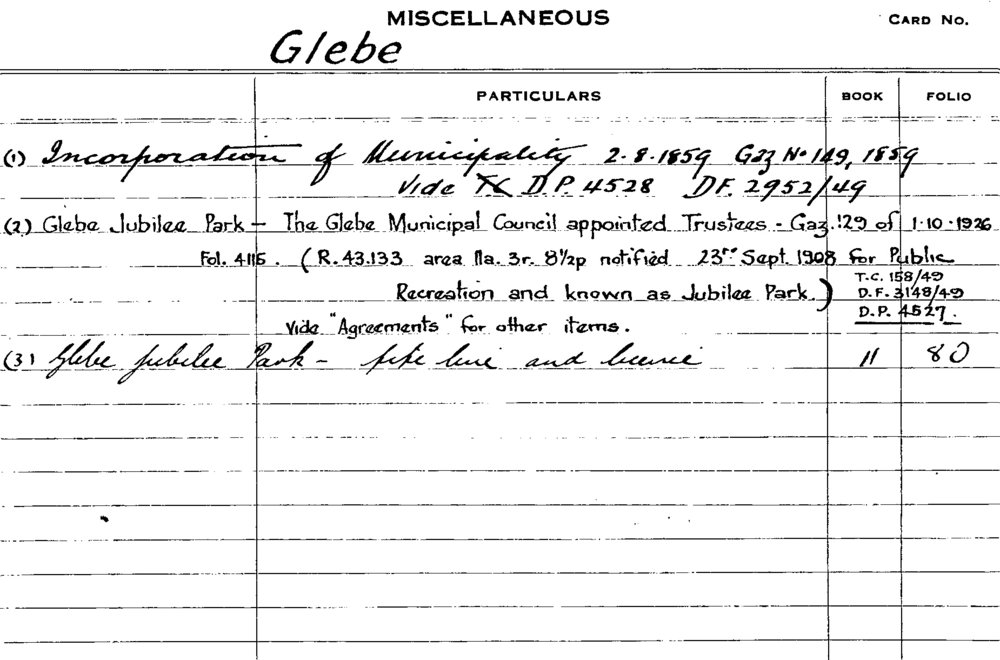 MISCELLANEOUS
CARD NO.
Glebe
PARTICULARS BOOK FOLIO
(1) Incorporation of Municipality 2-8-1859 Gaz No 149, 1859
Vide D.P. 4528 DF. 2952/49
(2) Glebe Jubilee Park - The Glebe Municipal Council appointed Trustees - Gaz. 129 of 1-10-1926
Fol. 4115. (R.43.133 area 11a. 3r. 8½p notified 23rd Sept. 1908 for Public
T.C. 158/49
Recreation and known as Jubilee Park.) D.F. 3148/49
D.P. 4527.
Vide "Agreements" for other items.
(3) Glebe Jubilee Park - pipe line and licence 11 80